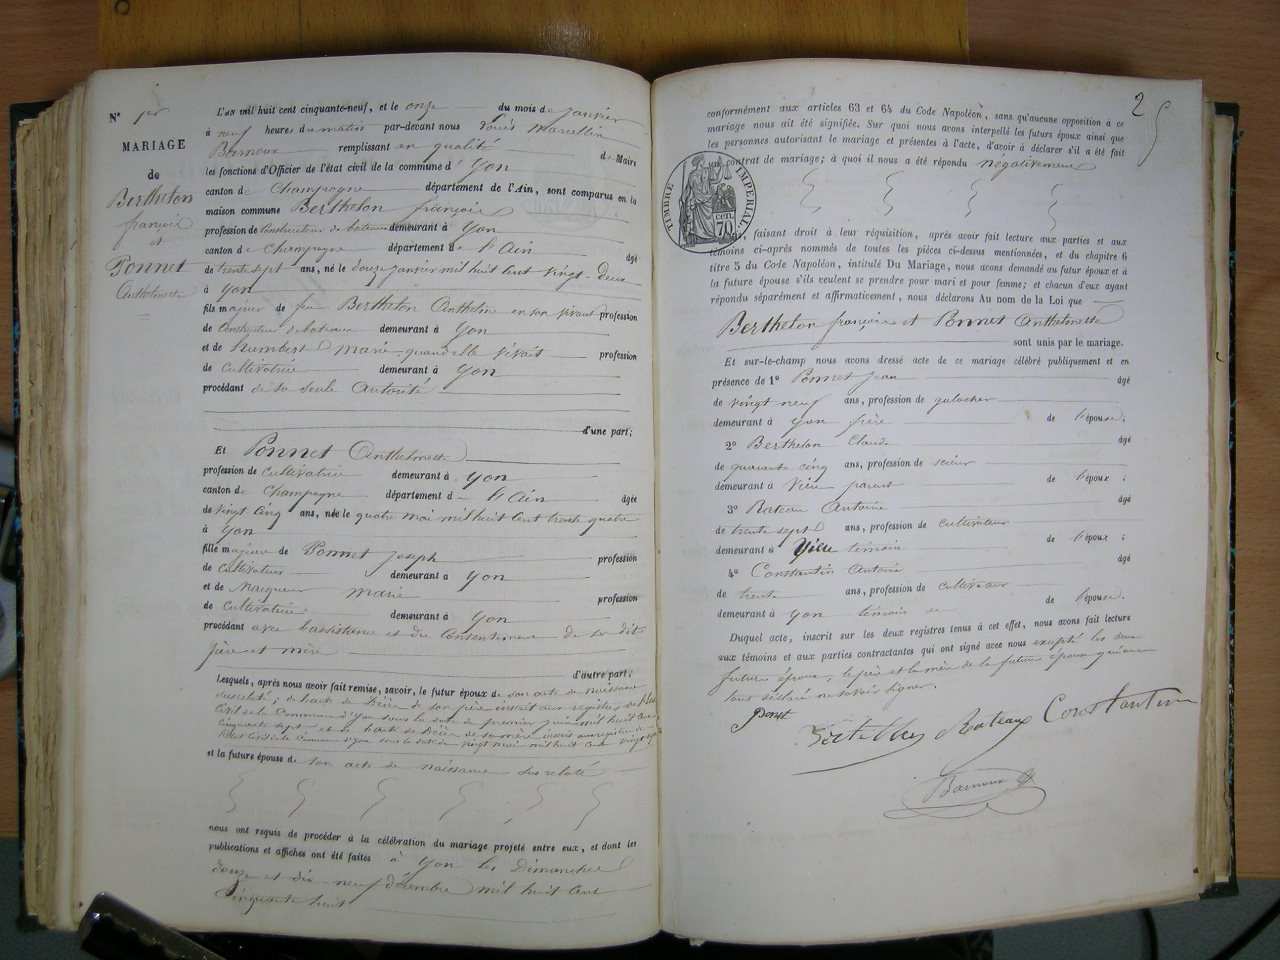 N° 1er
MARIAGE
de
Berthelon
françois
et
Ponnet
Anthelmette
L'AN mil huit cent cinquante-neuf, et le onze du mois de janvier
à neuf heures du matin par-devant nous Louis Marcellin
Barnoux remplissant en qualité de Maire
les fonctions d'Officier de l'état civil de la commune d'Yon
canton de Champagne département de l'Ain, sont comparus en la
maison commune Berthelon françois
profession de Constructeur de bateaux demeurant à Yon
canton de Champagne département de l'Ain âgé
de trente sept ans, né le douze janvier mil huit cent vingt-deux
à Yon
fils majeur de feu Berthelon Anthelme en son vivant profession
de Constructeur de bateaux demeurant à Yon
et de Humbert Marie quand elle vivait profession
de Cultivatrice demeurant à Yon
procédant de sa seule Autorité
d'une part;
Et Ponnet Anthelmette
profession de Cultivatrice demeurant à Yon
canton de Champagne département de l'Ain âgée
de vingt cinq ans, née le quatre mai mil huit cent trente quatre
à Yon
fille majeure de Ponnet Joseph profession
de Cultivateur demeurant à Yon
et de Marie profession
de Cultivatrice demeurant à Yon
procédant avec l'assistance et du Consentement de ses dits
père et mère
d'autre part;
Lesquels, après nous avoir fait remise, savoir, le futur époux de son acte de naissance
susrelaté; de l'acte de Décès de son père inscrit aux registres de l'Etat
Civil de la Commune d'Yon sous la date du premier juin mil huit cent
cinquante sept et de l'acte de Décès de sa mère inscrit aux registres de
l'état civil de la Commune d'Yon sous la date du vingt mai mil huit cent vingt sept
et la future épouse de son acte de naissance susrelaté
nous ont requis de procéder à la célébration du mariage projeté entre eux, et dont les
publications et affiches ont été faites à Yon les Dimanches
douze et dix-neuf décembre mil huit cent
cinquante huit
2
conformément aux articles 63 et 64 du Code Napoléon, sans qu'aucune opposition à ce
mariage nous ait été signifiée. Sur quoi nous avons interpellé les futurs époux ainsi que
les personnes autorisant le mariage et présentes à l'acte, d'avoir à déclarer s'il a été fait
un contrat de mariage; à quoi il nous a été répondu négativement
TIMBRE IMPÉRIAL
70 cen.
faisant droit à leur réquisition, après avoir fait lecture aux parties et aux
témoins ci-après nommés de toutes les pièces ci-dessus mentionnées, et du chapitre 6
titre 5 du Code Napoléon, intitulé Du Mariage, nous avons demandé au futur époux et à
la future épouse s'ils veulent se prendre pour mari et pour femme; et chacun d'eux ayant
répondu séparément et affirmativement, nous déclarons Au nom de la Loi que
Berthelon françois et Ponnet Anthelmette
sont unis par le mariage.
Et sur-le-champ nous avons dressé acte de ce mariage célébré publiquement et en
présence de 1° Ponnet Jean âgé
de vingt neuf ans, profession de galocher
demeurant à Yon frère de l'épouse;
2° Berthelon Claude âgé
de quarante cinq ans, profession de scieur
demeurant à Vieu parent de l'époux;
3° Rateau Antoine âgé
de trente sept ans, profession de cultivateur
demeurant à Yon témoin de l'époux;
4° Constantin Antoine âgé
de trente ans, profession de cultivateur
demeurant à Yon témoin de l'épouse.
Duquel acte, inscrit sur les deux registres tenus à cet effet, nous avons fait lecture
aux témoins et aux parties contractantes qui ont signé avec nous excepté les deux
futurs époux, le père et la mère de la future épouse qui
ont déclaré ne savoir signer.
Ponet
Rateau Constantin
Barnoux